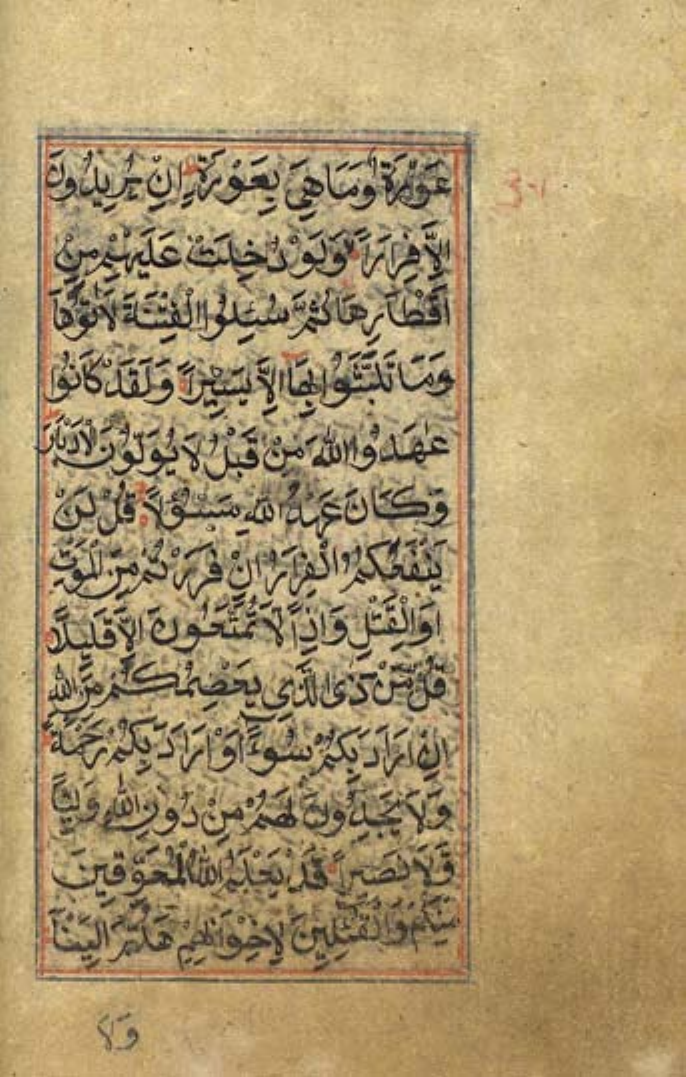 عَوْرَةٌ وَمَا هِيَ بِعَوْرَةٍ اِنْ يُرِيدُونَ
اِلَّا فِرَارًا وَلَوْ دُخِلَتْ عَلَيْهِمْ مِنْ
اَقْطَارِهَا ثُمَّ سُئِلُوا الْفِتْنَةَ لَاٰتَوْهَا
وَمَا تَلَبَّثُوا بِهَا اِلَّا يَسِيرًا وَلَقَدْ كَانُوا
عٰهَدُوا اللّٰهَ مِنْ قَبْلُ لَا يُوَلُّونَ الْاَدْبَارَ
وَكَانَ عَهْدُ اللّٰهِ مَسْؤُلًا قُلْ لَنْ
يَنْفَعَكُمُ الْفِرَارُ اِنْ فَرَرْتُمْ مِنَ الْمَوْتِ
اَوِ الْقَتْلِ وَاِذًا لَا تُمَتَّعُونَ اِلَّا قَلِيلًا
قُلْ مَنْ ذَا الَّذِي يَعْصِمُكُمْ مِنَ اللّٰهِ
اِنْ اَرَادَ بِكُمْ سُوءًا اَوْ اَرَادَ بِكُمْ رَحْمَةً
وَلَا يَجِدُونَ لَهُمْ مِنْ دُونِ اللّٰهِ وَلِيًّا
وَلَا نَصِيرًا قَدْ يَعْلَمُ اللّٰهُ الْمُعَوِّقِينَ
مِنْكُمْ وَالْقَائِلِينَ لِاِخْوَانِهِمْ هَلُمَّ اِلَيْنَا
ولا